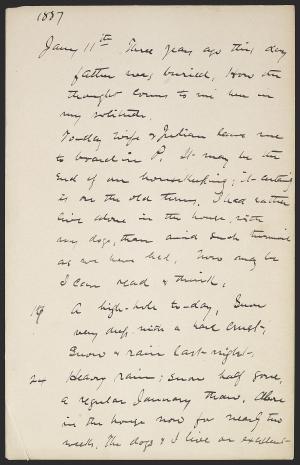 1887
Jany 11th Three years ago this day
father was buried, how the
thought comes to me here in
my solitude.
To-day wife & Julian leave me
to board in P. It may be the
end of our housekeeping; it certainly
is on the old terms. I had rather
live alone in the house, with
my dogs, than amid such turmoil
as we have had. Now may be
I can read & think.
19 A high-hole to-day, Snow
very deep with a hard crust,
Snow & rain last-night.
24 Heavy rain; snow half gone,
a regular January thaw. Alone
in the house now for nearly two
weeks. The dogs & I live on excellent